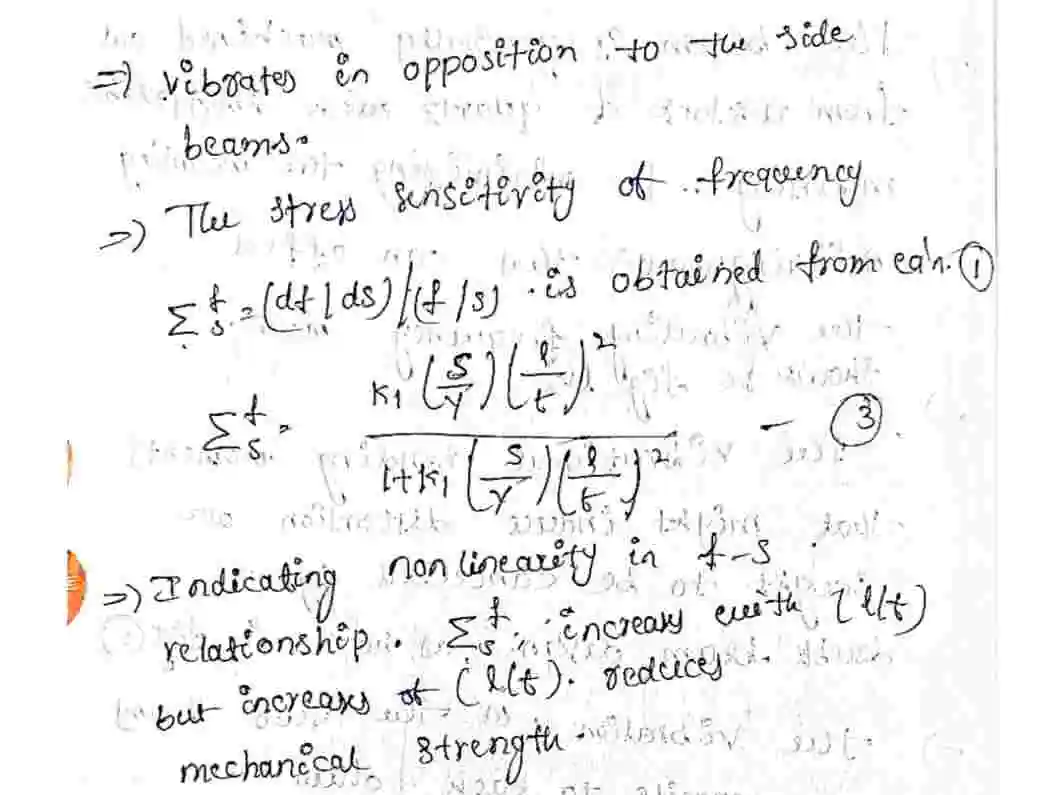 =) vibrates in opposition to the side
beams.
=) The stress sensitivity of frequency
Σ_s^f = (df/ds)/(f/s) is obtained from eqn. ①
Σ_s^f = K₁ (S/Y)(l/t)² / 1+K₁ (S/Y)(l/t)² – ③
=) Indicating non linearity in f-s
relationship. Σ_s^f increases with (l/t)
but increases of (l/t). reduces
mechanical strength.